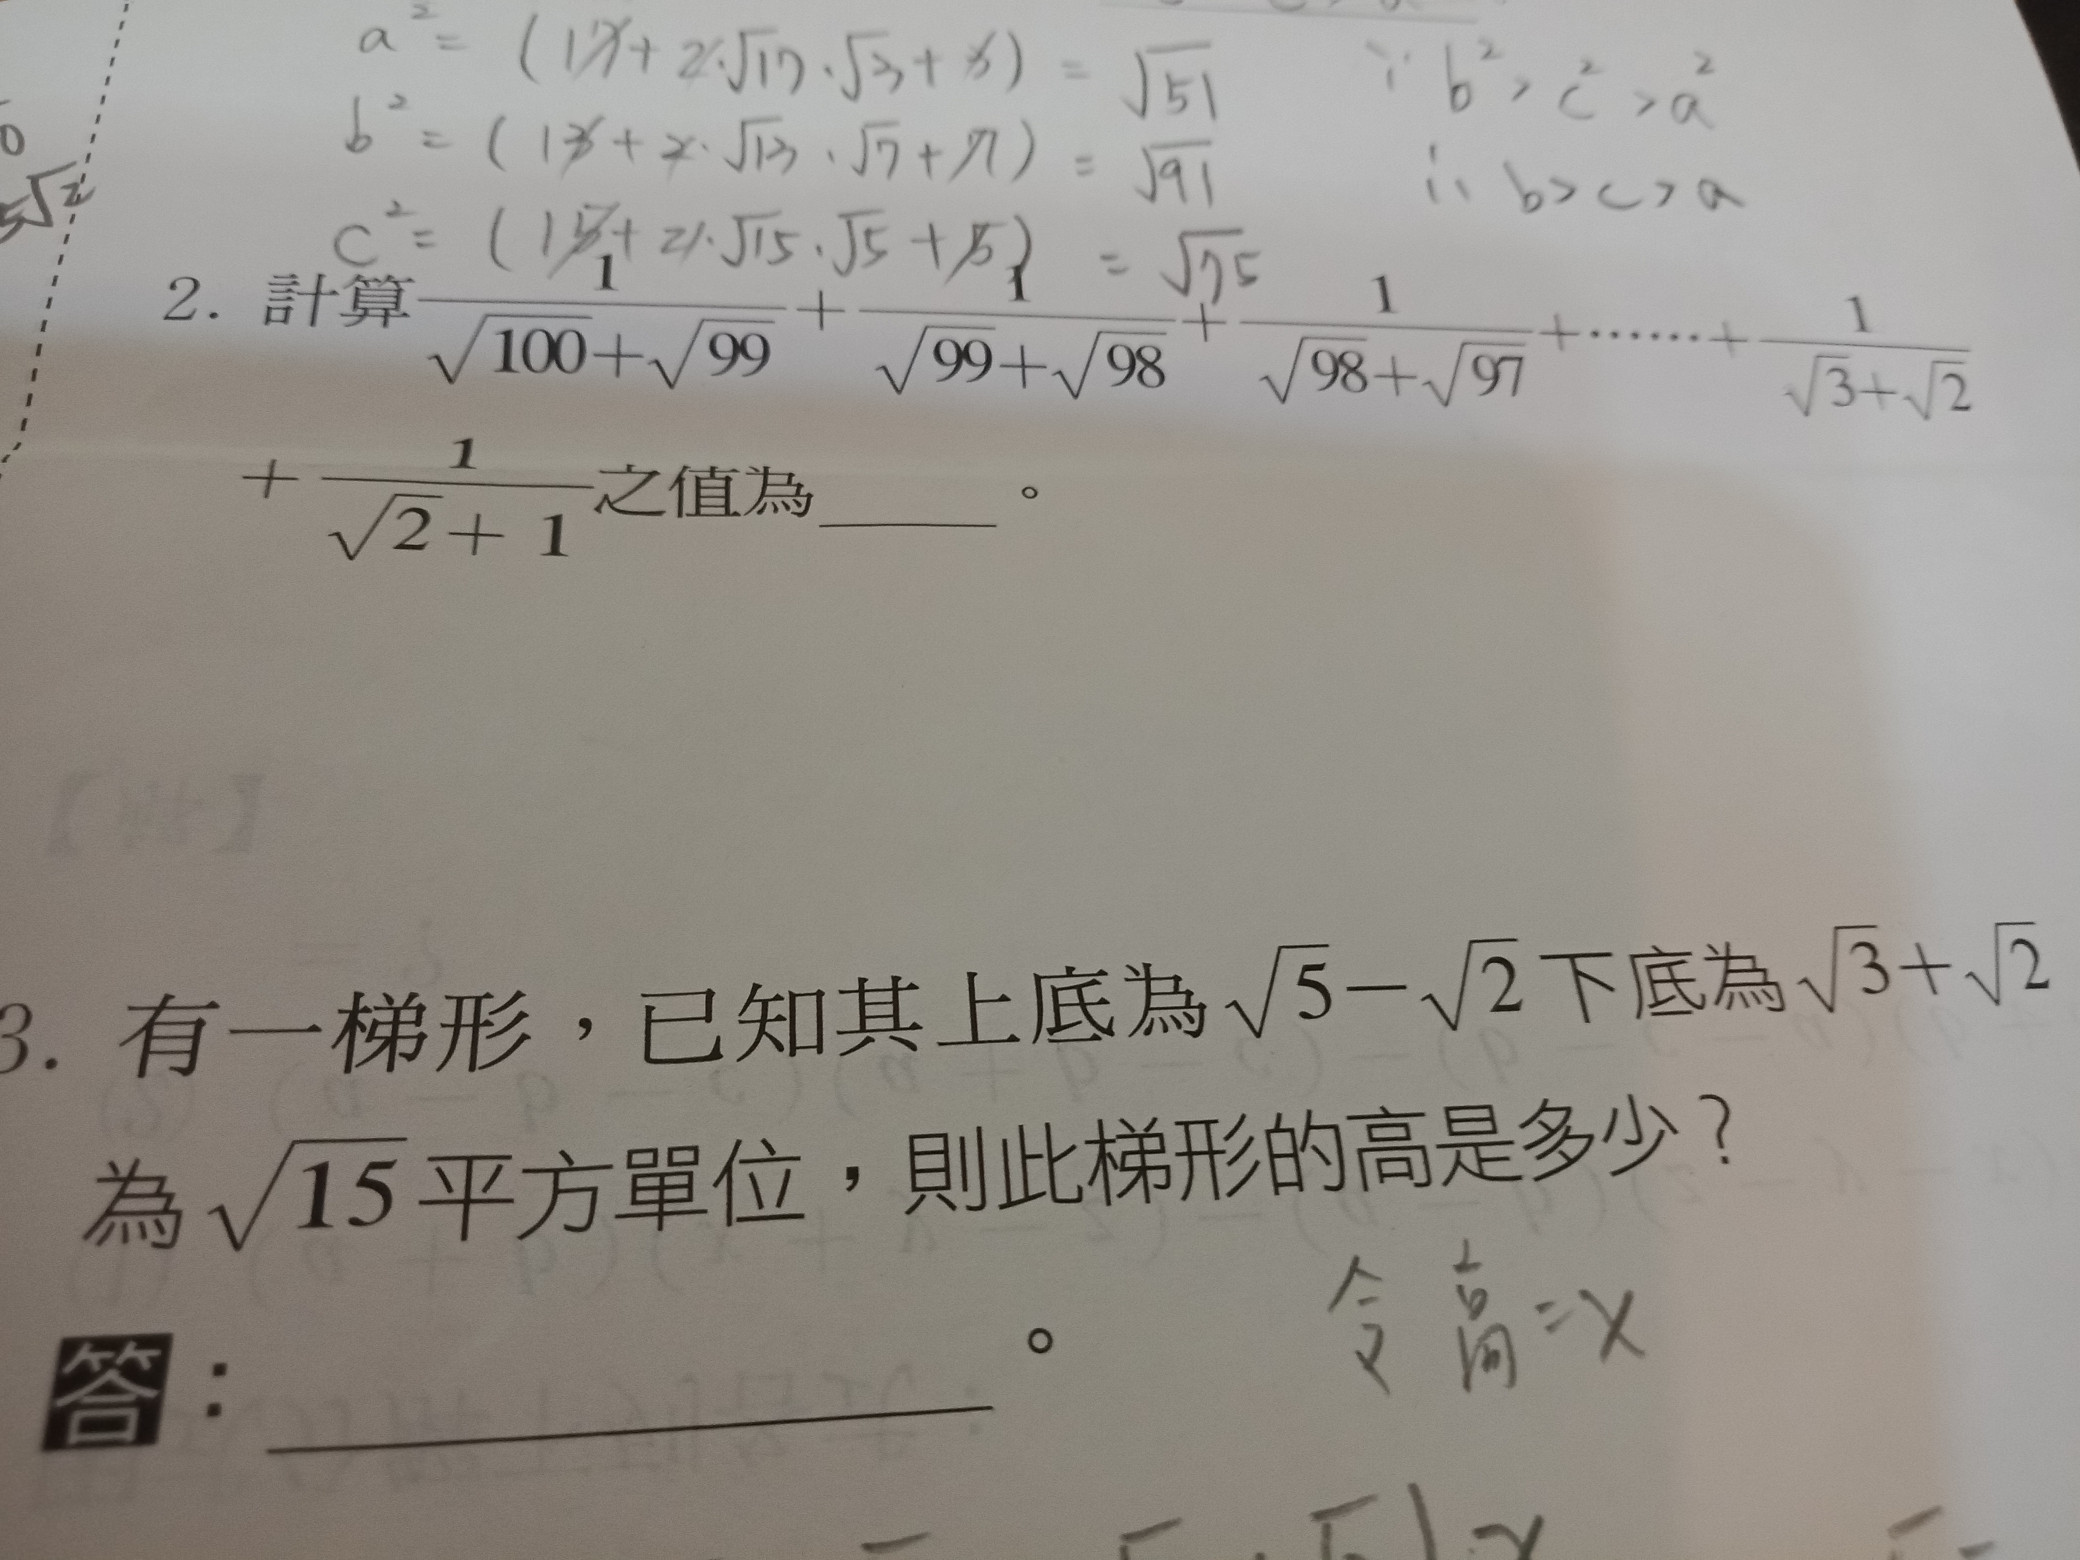 a² = (17+2·√17·√3+3) = √51 ∵ b²>c²>a²
b² = (13+2·√13·√7+7) = √91 ∴ b>c>a
5√2
c² = (15+2·√15·√5+5) = √75
2. 計算 1/(√100+√99) + 1/(√99+√98) + 1/(√98+√97) +……+ 1/(√3+√2)
+ 1/(√2+1) 之值為____。
3. 有一梯形，已知其上底為√5−√2下底為√3+√2
為√15平方單位，則此梯形的高是多少？
令高=x
答：________。